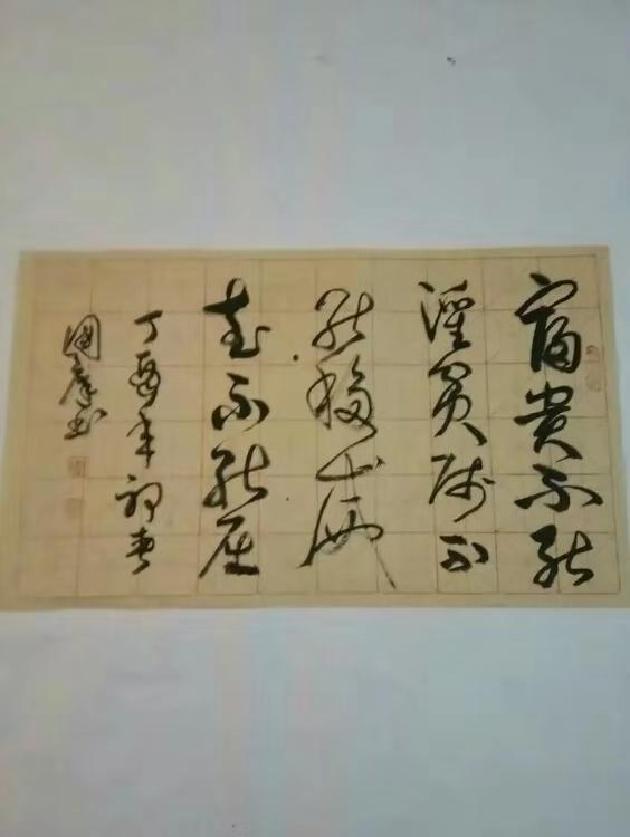 富贵不能
淫贫贱不
能移威武
不能屈
丁酉年初春
国彦书